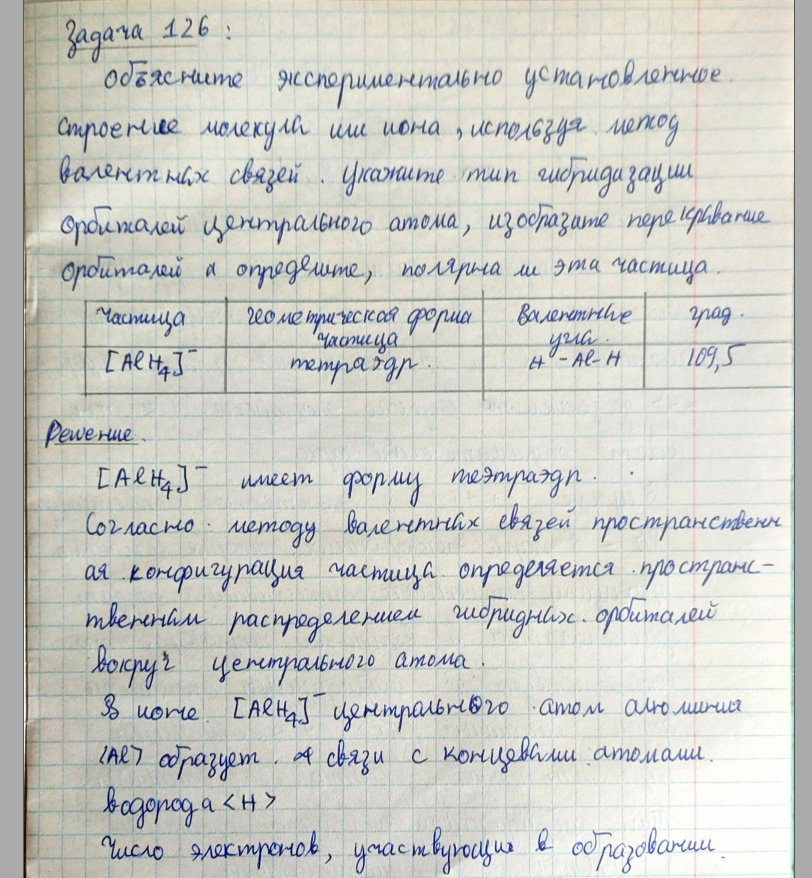 Задача 126:
Объясните экспериментально установленное
строение молекула или иона, используя метод
валентнах связей. Укажите тип гибридизации
орбиталей центрального атома, изобразите перекрывание
орбиталей и определите, полярна ли эта частица.
Частица геометрическая форма частица Валентные угла. град.
[AlH4]⁻ тетраэдр. H - Al - H 109,5
Решение.
[AlH4]⁻ имеет форму теэтраэдр.
Согласно методу валентнах связей пространственн
ая конфигурация частица определяется пространс-
твеннам распределением гибриднах орбиталей
вокруг центрального атома.
В ионе [AlH4]⁻ центрального атом алюминия
<Al> образует 4 связи с концевами атомами
водорода <H>
Число электронов, участвующих в образовании